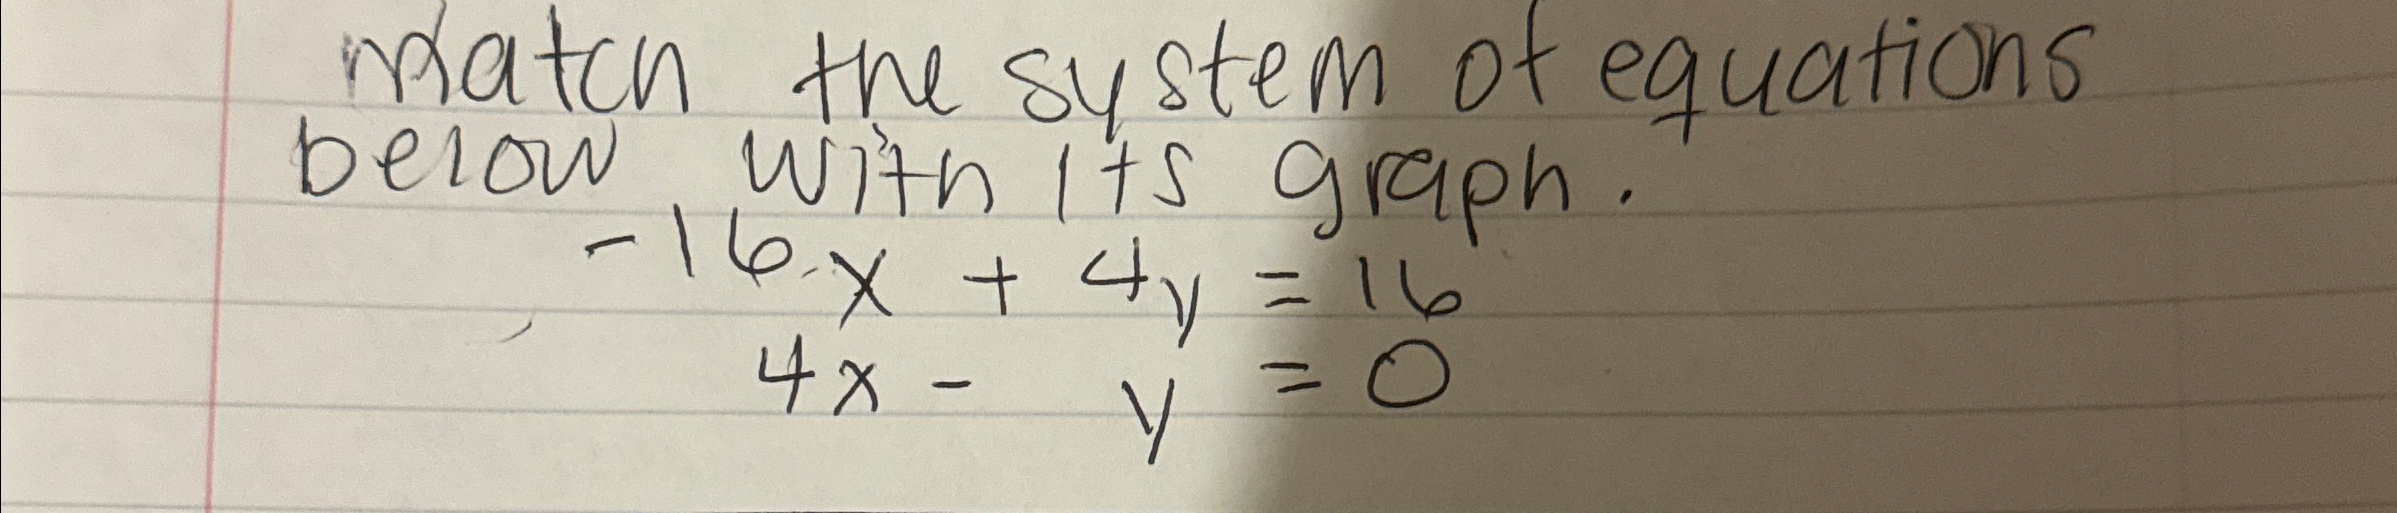 Match the system of equations
below with its graph.
-16x + 4y = 16
4x - y = 0